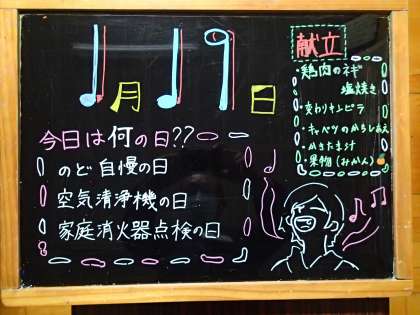 1月19日
今日は何の日??
のど自慢の日
空気清浄機の日
家庭消火器点検の日
献立
・鶏肉のネギ
塩焼き
・変わりキンピラ
・キャベツのからしあえ
・かきたま汁
・果物(みかん)